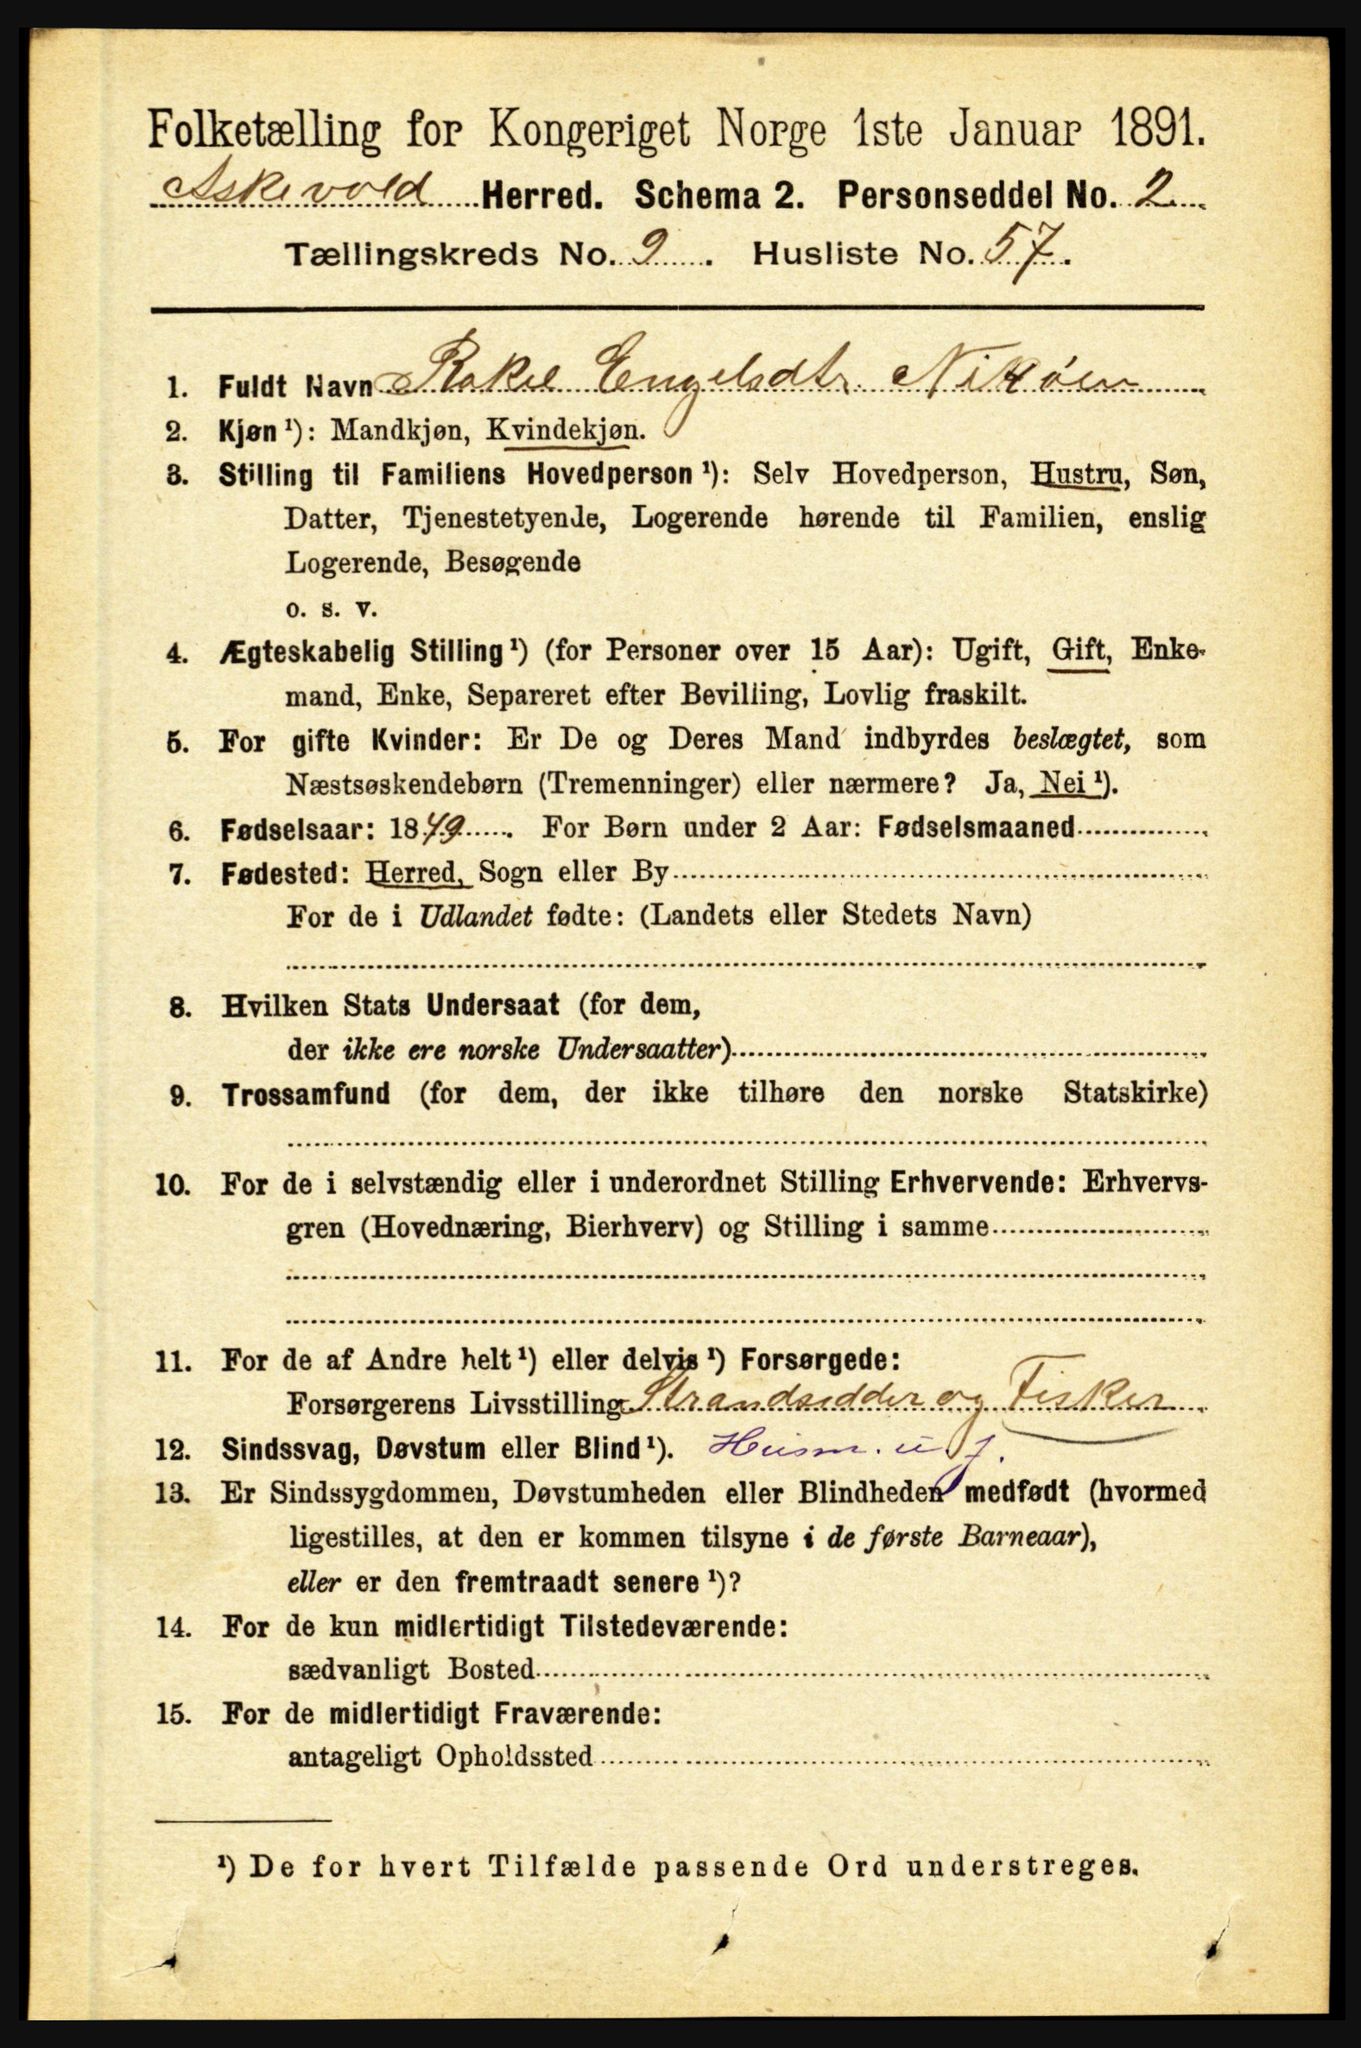 Folketælling for Kongeriget Norge 1ste Januar 1891.
Askevold Herred. Schema 2. Personseddel No. 2
Tællingskreds No. 9. Husliste No. 57.
1. Fuldt Navn Rakel Engelsdtr. Nikøen
2. Kjøn ¹): Mandkjøn, Kvindekjøn.
3. Stilling til Familiens Hovedperson ¹): Selv Hovedperson, Hustru, Søn,
Datter, Tjenestetyende, Logerende hørende til Familien, enslig
Logerende, Besøgende
o. s. v.
4. Ægteskabelig Stilling ¹) (for Personer over 15 Aar): Ugift, Gift, Enke-
mand, Enke, Separeret efter Bevilling, Lovlig fraskilt.
5. For gifte Kvinder: Er De og Deres Mand indbyrdes beslægtet, som
Næstsøskendebørn (Tremenninger) eller nærmere? Ja, Nei ¹).
6. Fødselsaar: 1849. For Børn under 2 Aar: Fødselsmaaned
7. Fødested: Herred, Sogn eller By
For de i Udlandet fødte: (Landets eller Stedets Navn)
8. Hvilken Stats Undersaat (for dem,
der ikke ere norske Undersaatter)
9. Trossamfund (for dem, der ikke tilhøre den norske Statskirke)
10. For de i selvstændig eller i underordnet Stilling Erhvervende: Erhvervs-
gren (Hovednæring, Bierhverv) og Stilling i samme
11. For de af Andre helt ¹) eller delvis ¹) Forsørgede:
Forsørgerens Livsstilling Strandsidder og Fisker
12. Sindssvag, Døvstum eller Blind ¹). Husm. u. j.
13. Er Sindssygdommen, Døvstumheden eller Blindheden medfødt (hvormed
ligestilles, at den er kommen tilsyne i de første Barneaar),
eller er den fremtraadt senere ¹)?
14. For de kun midlertidigt Tilstedeværende:
sædvanligt Bosted
15. For de midlertidigt Fraværende:
antageligt Opholdssted
¹) De for hvert Tilfælde passende Ord understreges.